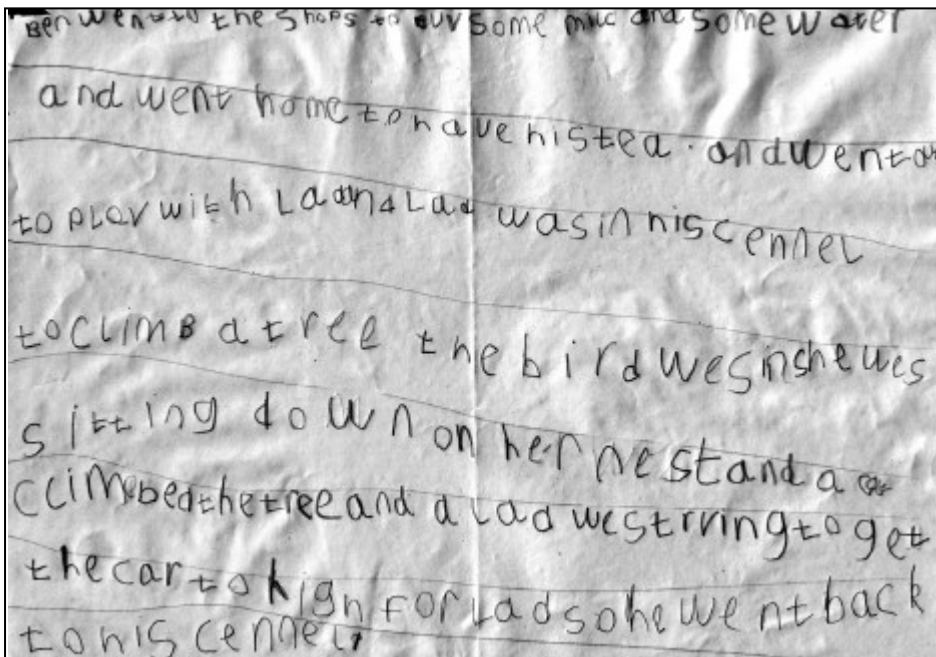 Ben went to the shops to buy some milc and some water
and went home to have his tea. and went
to play with Lad and Lad was in his cennel
to climb a tree the bird wes in she wes
sitting down on her nest and a
climebed the tree and a lad wes trying to get
the car to high for lad so he went back
to his cennel.